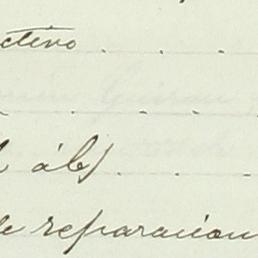 ctivo . . . .
. . . .
á b) . . .
de reparacion